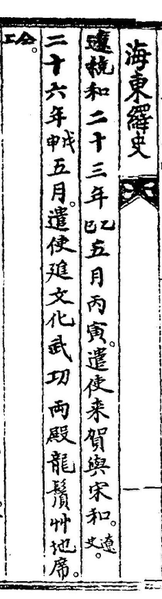 海東繹史
遼統和二十三年乙巳五月丙寅。遣使来賀與宋和。遼史
二十六年戊申五月。遣使進文化武功両殿龍鬚艸地席。
仝上。